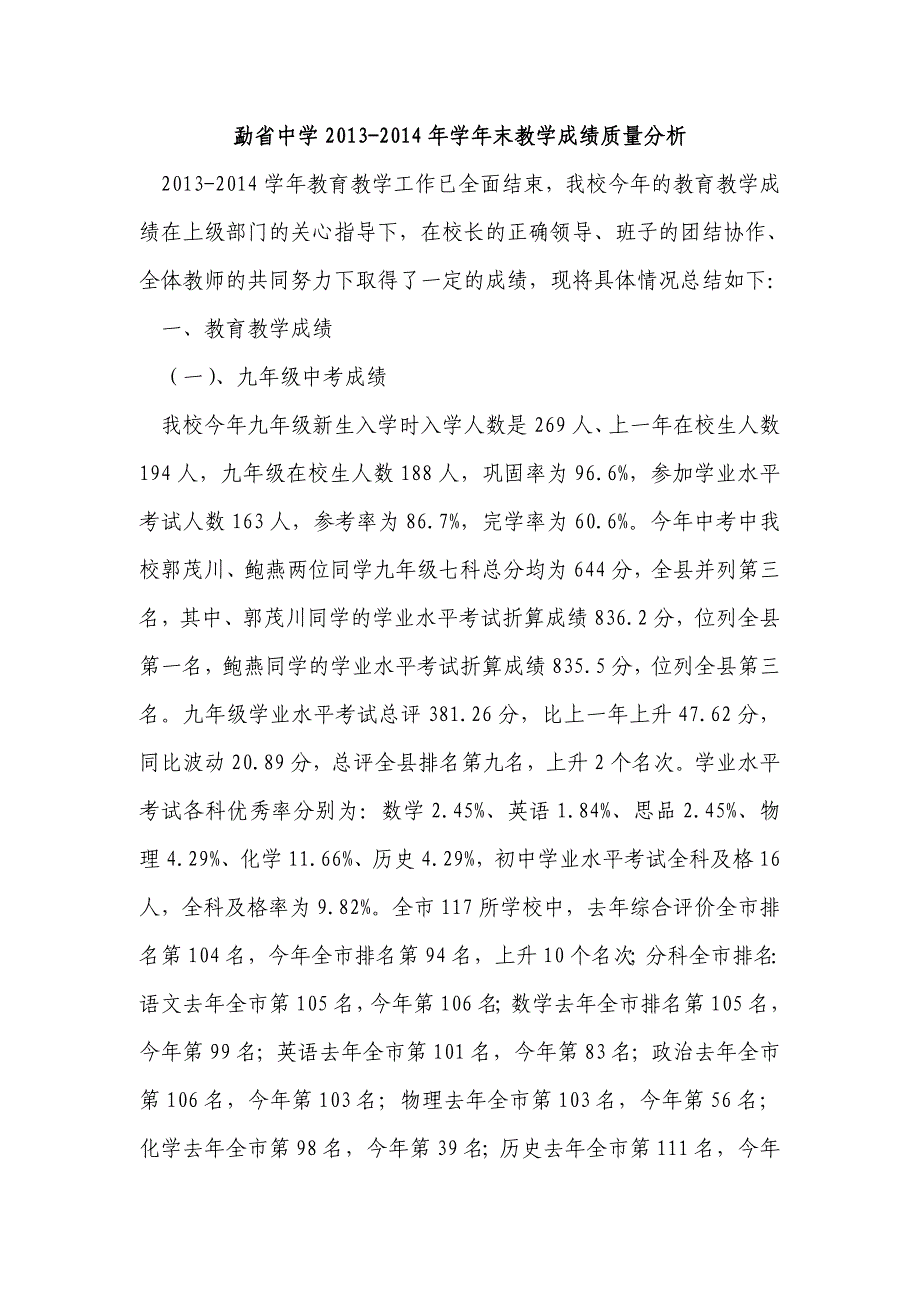 勐省中学2013-2014年学年末教学成绩质量分析
2013-2014学年教育教学工作已全面结束，我校今年的教育教学成
绩在上级部门的关心指导下，在校长的正确领导、班子的团结协作、
全体教师的共同努力下取得了一定的成绩，现将具体情况总结如下：
一、教育教学成绩
（一）、九年级中考成绩
我校今年九年级新生入学时入学人数是269人、上一年在校生人数
194人，九年级在校生人数188人，巩固率为96.6%，参加学业水平
考试人数163人，参考率为86.7%，完学率为60.6%。今年中考中我
校郭茂川、鲍燕两位同学九年级七科总分均为644分，全县并列第三
名，其中、郭茂川同学的学业水平考试折算成绩836.2分，位列全县
第一名，鲍燕同学的学业水平考试折算成绩835.5分，位列全县第三
名。九年级学业水平考试总评381.26分，比上一年上升47.62分，
同比波动20.89分，总评全县排名第九名，上升2个名次。学业水平
考试各科优秀率分别为：数学2.45%、英语1.84%、思品2.45%、物
理4.29%、化学11.66%、历史4.29%，初中学业水平考试全科及格16
人，全科及格率为9.82%。全市117所学校中，去年综合评价全市排
名第104名，今年全市排名第94名，上升10个名次；分科全市排名：
语文去年全市第105名，今年第106名；数学去年全市排名第105名，
今年第99名；英语去年全市第101名，今年第83名；政治去年全市
第106名，今年第103名；物理去年全市第103名，今年第56名；
化学去年全市第98名，今年第39名；历史去年全市第111名，今年